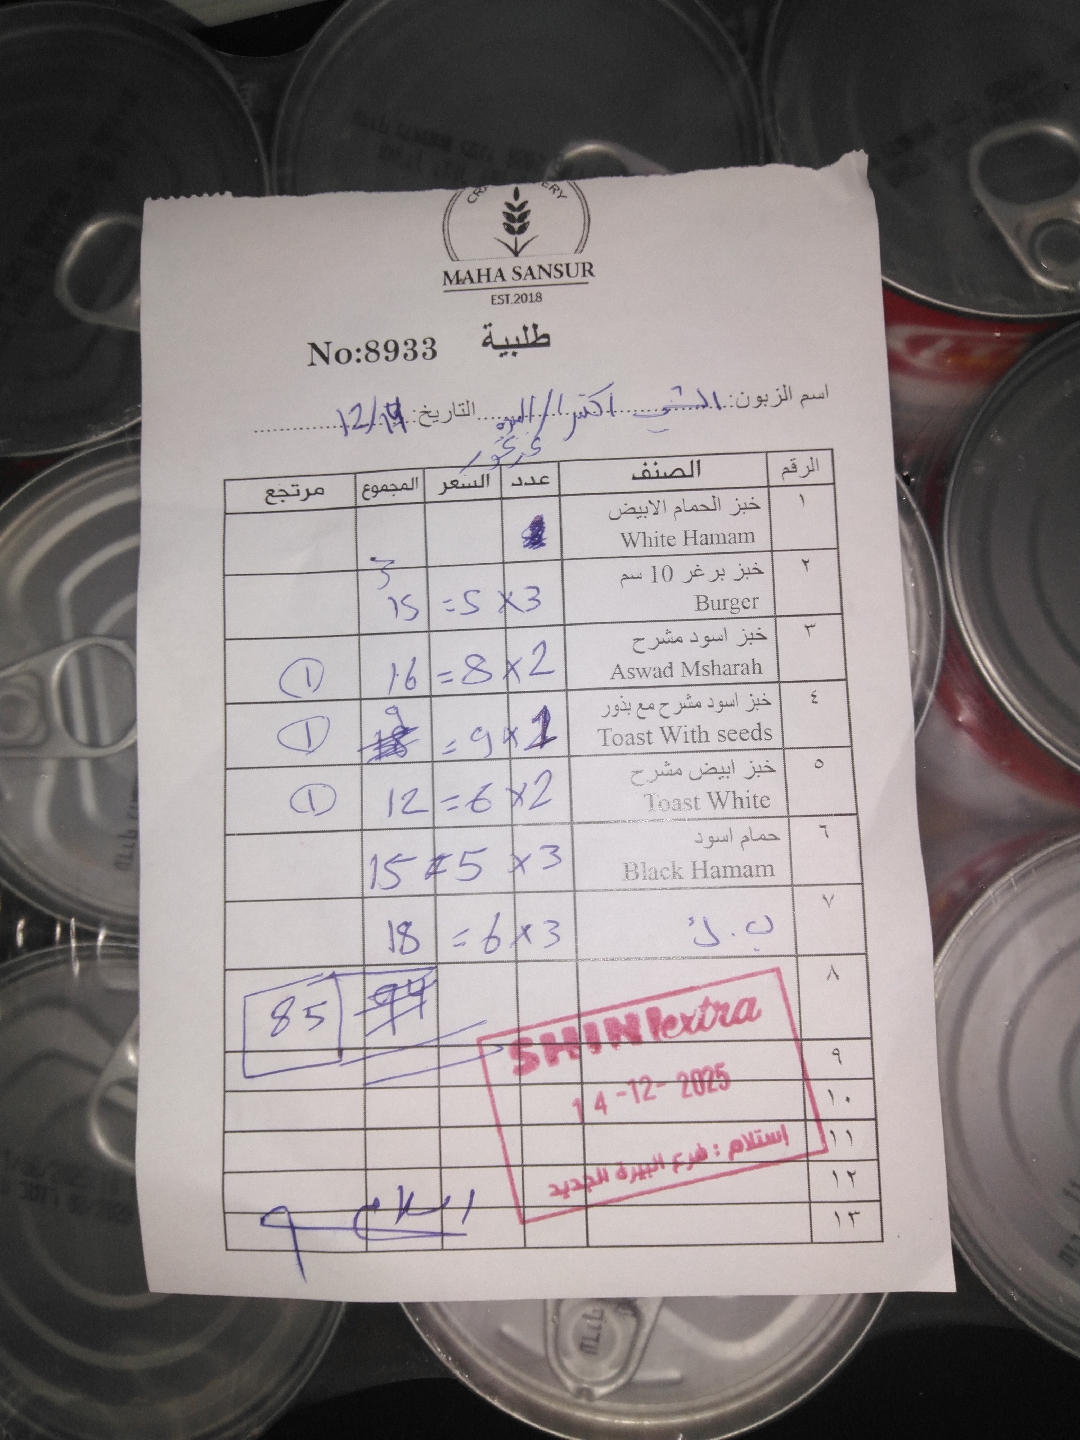 MAHA SANSUR
EST.2018
No:8933 طلبية
اسم الزبون: الشني اكسترا / البيرة التاريخ: 12/14
الرقم الصنف عدد السعر المجموع مرتجع
١ خبز الحمام الابيض
White Hamam
٢ خبز برغر 10 سم
Burger 3 × 5 = 15
٣ خبز اسود مشرح
Aswad Msharah 2 × 8 = 16 1
٤ خبز اسود مشرح مع بذور
Toast With seeds 1 × 9 = 9 1
٥ خبز ابيض مشرح
Toast White 2 × 6 = 12 1
٦ حمام اسود
Black Hamam 3 × 5 = 15
٧ ب.ك 3 × 6 = 18
٨ 94 85
SHINI extra
٩
14-12-2025
١٠
١١
استلام : فرع البيرة الجديد
١٢
اسلام
١٣